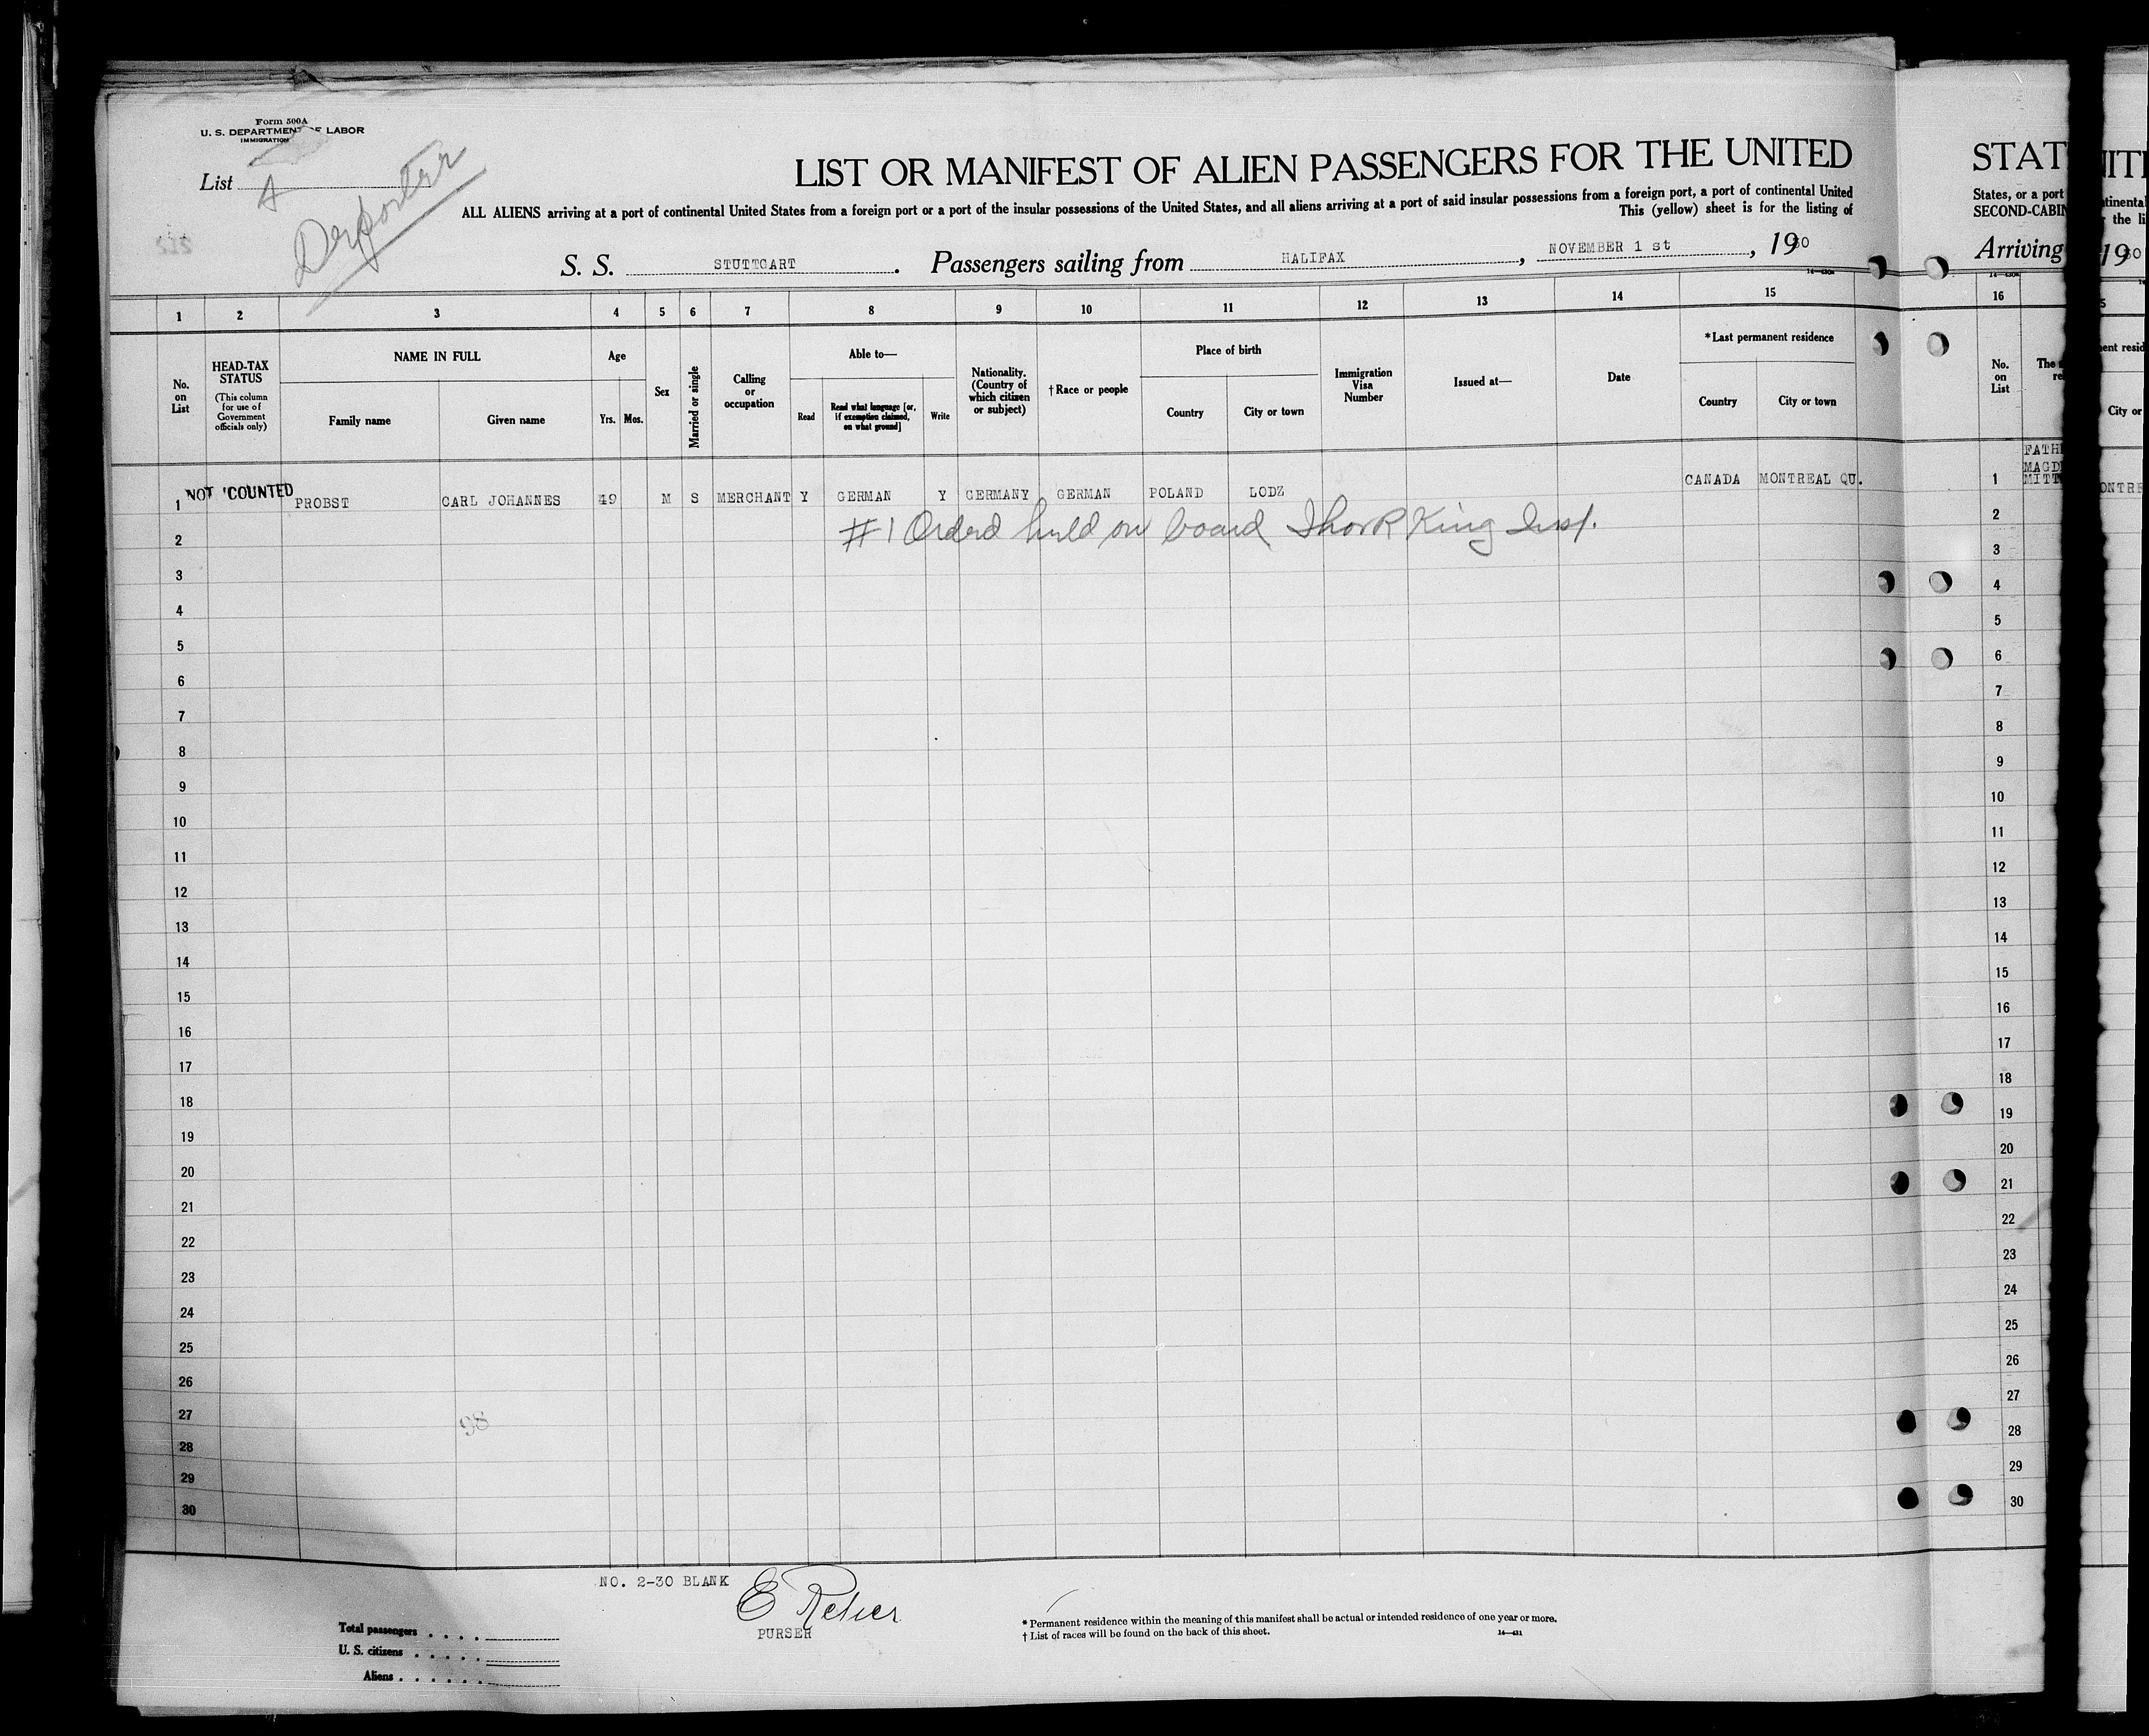 Form 500A
U. S. DEPARTMENT OF LABOR
IMMIGRATION
List
4
Deportee
LIST OR MANIFEST OF ALIEN PASSENGERS FOR THE UNITED
ALL ALIENS arriving at a port of continental United States from a foreign port or a port of the insular possessions of the United States, and all aliens arriving at a port of said insular possessions from a foreign port, a port of continental United
This (yellow) sheet is for the listing of
S. S. STUTTGART. Passengers sailing from HALIFAX, NOVEMBER 1 st, 1930
1 2 3 4 5 6 7 8 9 10 11 12 13 14 15
No. on List
HEAD-TAX STATUS
(This column for use of Government officials only)
NAME IN FULL
Family name Given name
Age
Yrs. Mos.
Sex
Married or single
Calling or occupation
Able to—
Read
Read what language [or, if exemption claimed, on what ground]
Write
Nationality. (Country of which citizen or subject)
†Race or people
Place of birth
Country City or town
Immigration Visa Number
Issued at—
Date
*Last permanent residence
Country City or town
1 NOT COUNTED PROBST CARL JOHANNES 49 M S MERCHANT Y GERMAN Y GERMANY GERMAN POLAND LODZ CANADA MONTREAL QU.
2 #1 Orderd held on board Thor R King Insp.
3
4
5
6
7
8
9
10
11
12
13
14
15
16
17
18
19
20
21
22
23
24
25
26
27
98
28
29
30
NO. 2-30 BLANK
PURSER
Total passengers
U. S. citizens
Aliens
* Permanent residence within the meaning of this manifest shall be actual or intended residence of one year or more.
† List of races will be found on the back of this sheet.
14—431
STAT
States, or a port
SECOND-CABIN
Arriving
16
No. on List
The
re
FATH
MAGD
MITT
1
2
3
4
5
6
7
8
9
10
11
12
13
14
15
16
17
18
19
20
21
22
23
24
25
26
27
28
29
30
NITE
ntinental
the li
1930
ent resid
City or
ONTRE